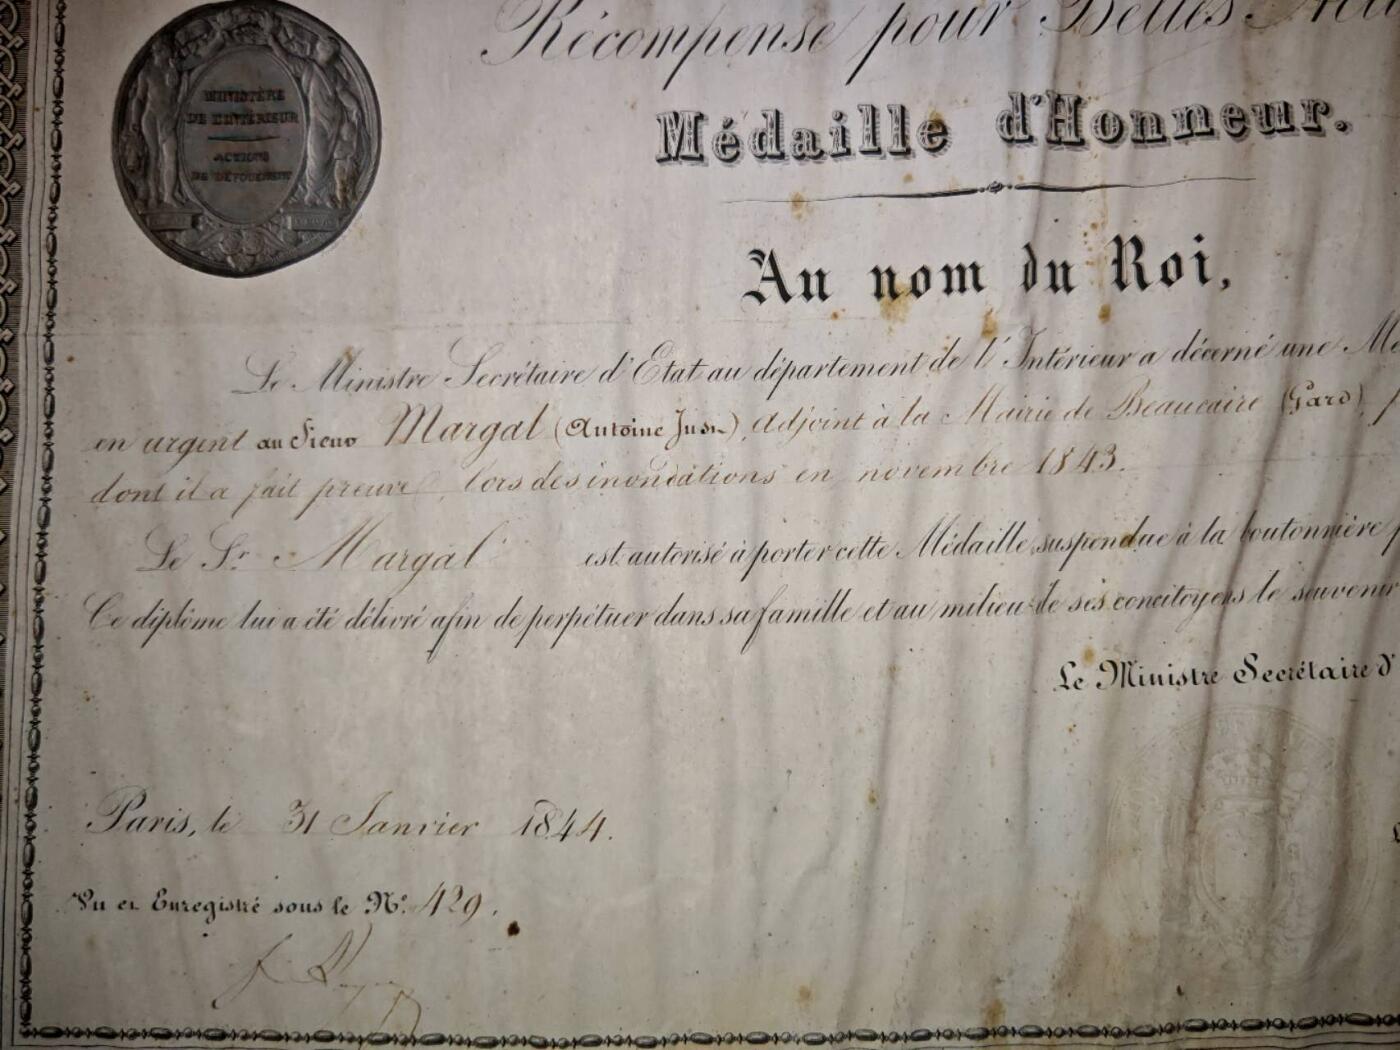 MINISTÈRE
DE L'INTÉRIEUR
ACTIONS
DE DÉVOUEMENT
Récompense pour Belles
Médaille d'Honneur.
Au nom du Roi,
Le Ministre Secrétaire d'Etat au département de l'Intérieur a décerné une Mé
en argent au Sieur Margal (Antoine Juste), Adjoint à la Mairie de Beaucaire (Gard), p
dont il a fait preuve, lors des inondations en novembre 1843.
Le Sr. Margal est autorisé à porter cette Médaille suspendue à la boutonnière p
Ce diplôme lui a été délivré afin de perpétuer dans sa famille et au milieu de ses concitoyens le souvenir
Le Ministre Secrétaire d'
Paris, le 31 Janvier 1844.
Vu et Enregistré sous le No. 429.